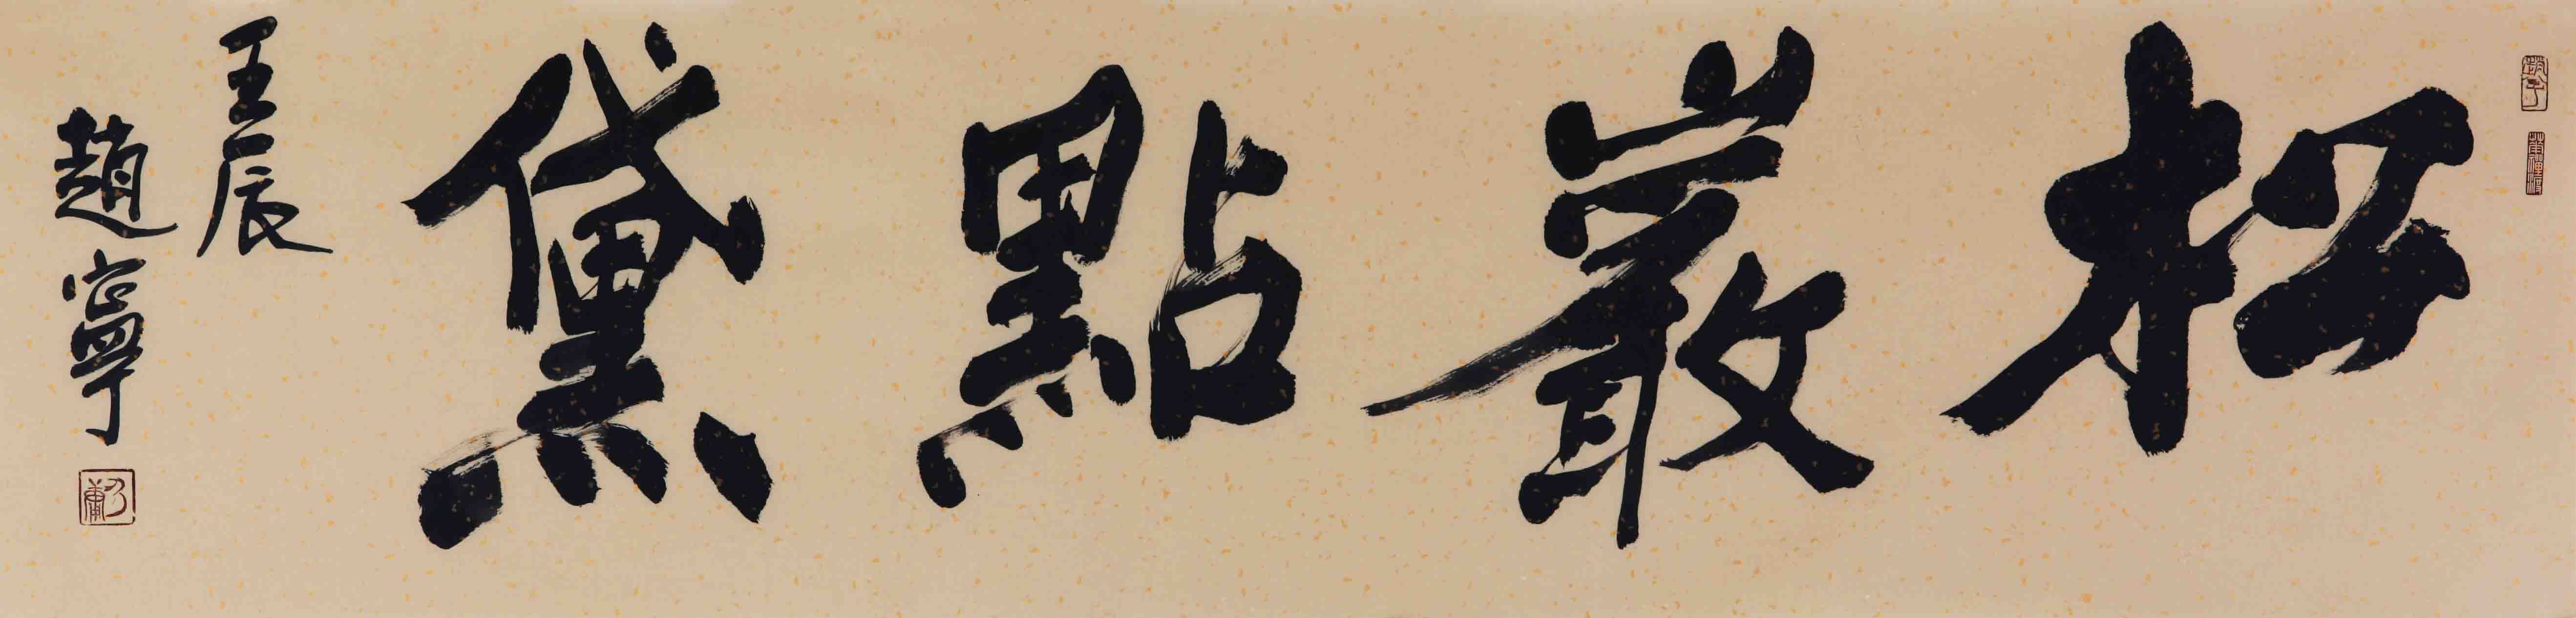 松巖點黛
壬辰
趙寧